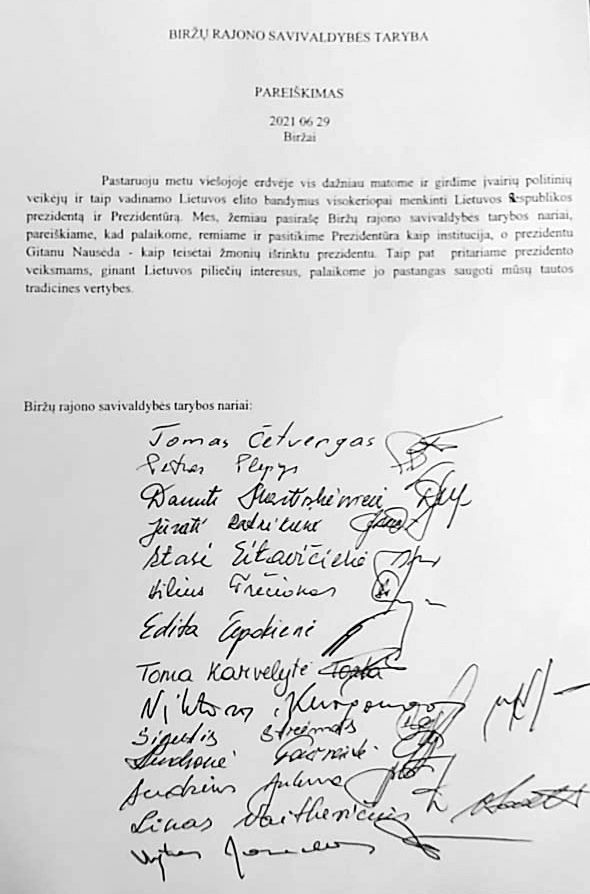 BIRŽŲ RAJONO SAVIVALDYBĖS TARYBA
PAREIŠKIMAS
2021 06 29
Biržai
Pastaruoju metu viešojoje erdvėje vis dažniau matome ir girdime įvairių politinių
veikėjų ir taip vadinamo Lietuvos elito bandymus visokeriopai menkinti Lietuvos Respublikos
prezidentą ir Prezidentūrą. Mes, žemiau pasirašę Biržų rajono savivaldybės tarybos nariai,
pareiškiame, kad palaikome, remiame ir pasitikime Prezidentūra kaip institucija, o prezidentu
Gitanu Nausėda - kaip teisėtai žmonių išrinktu prezidentu. Taip pat pritariame prezidento
veiksmams, ginant Lietuvos piliečių interesus, palaikome jo pastangas saugoti mūsų tautos
tradicines vertybes.
Biržų rajono savivaldybės tarybos nariai:
Tomas Četvergas
Petras
Danutė
Jūratė
Stasė Eitavičienė
Vilius
Edita
Toma Karvelytė
Audrius
Linas